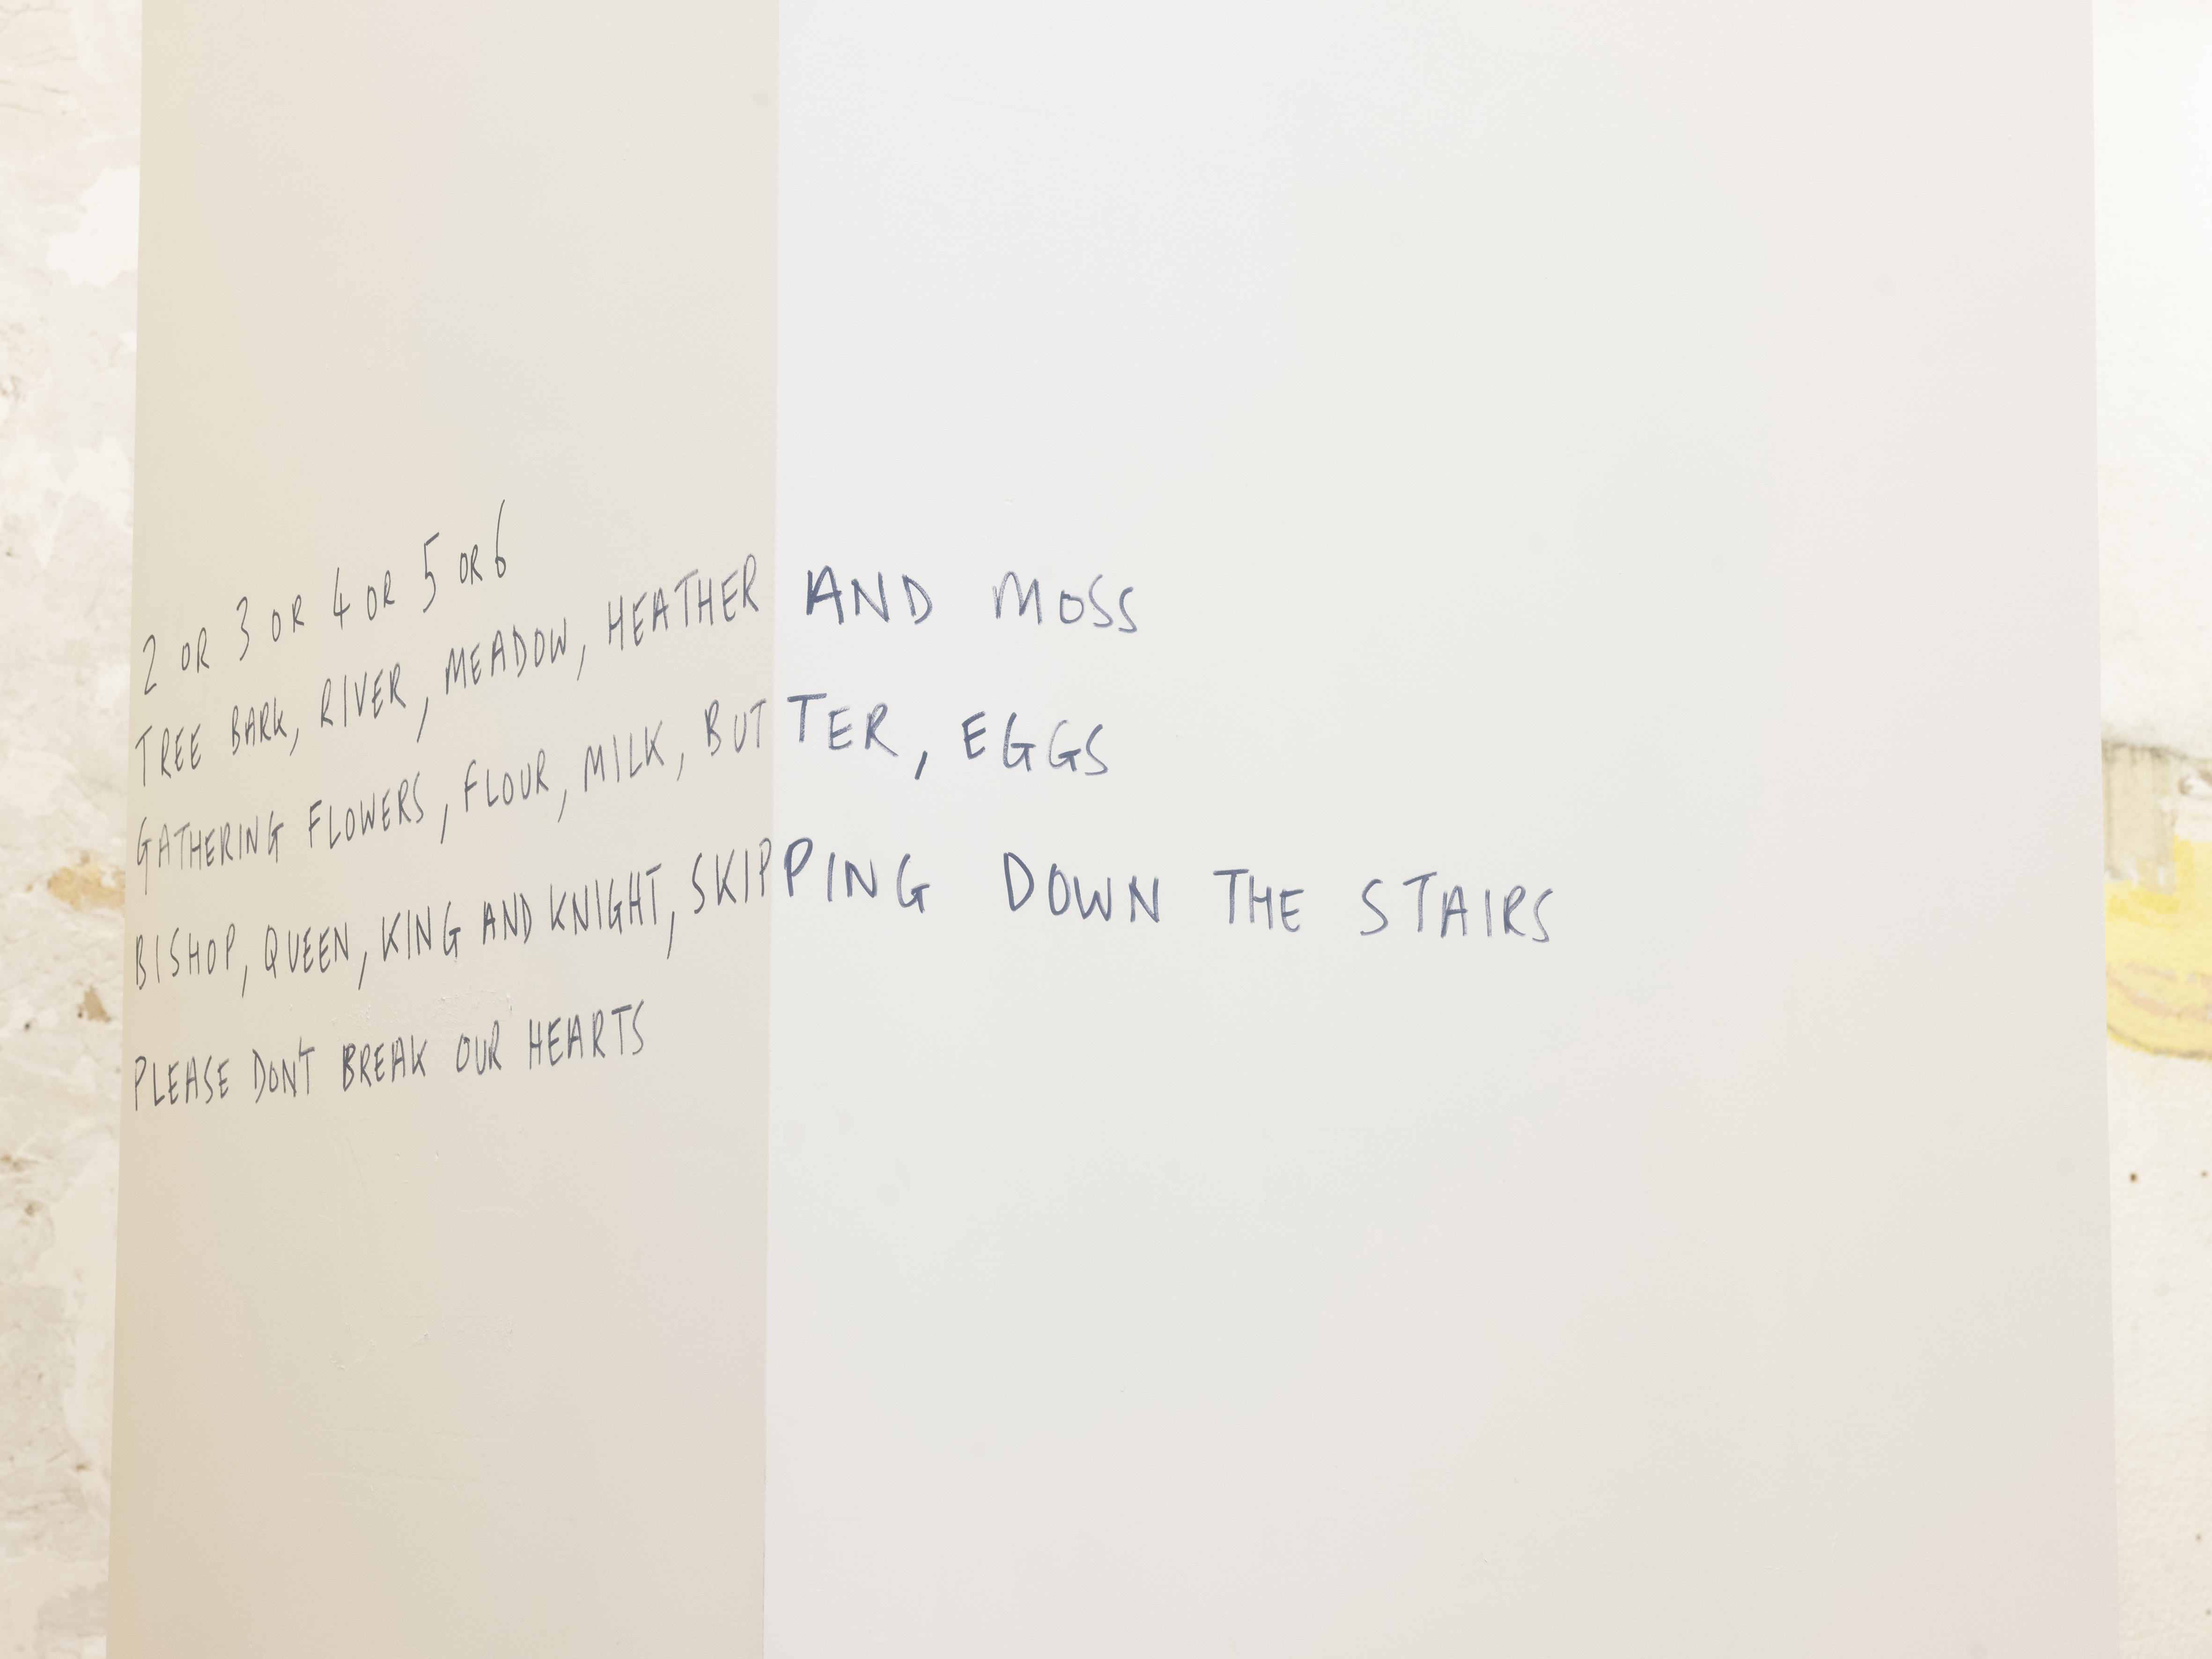 2 OR 3 OR 4 OR 5 OR 6
TREE BARK, RIVER, MEADOW, HEATHER AND MOSS
GATHERING FLOWERS, FLOUR, MILK, BUTTER, EGGS
BISHOP, QUEEN, KING AND KNIGHT, SKIPPING DOWN THE STAIRS
PLEASE DON'T BREAK OUR HEARTS